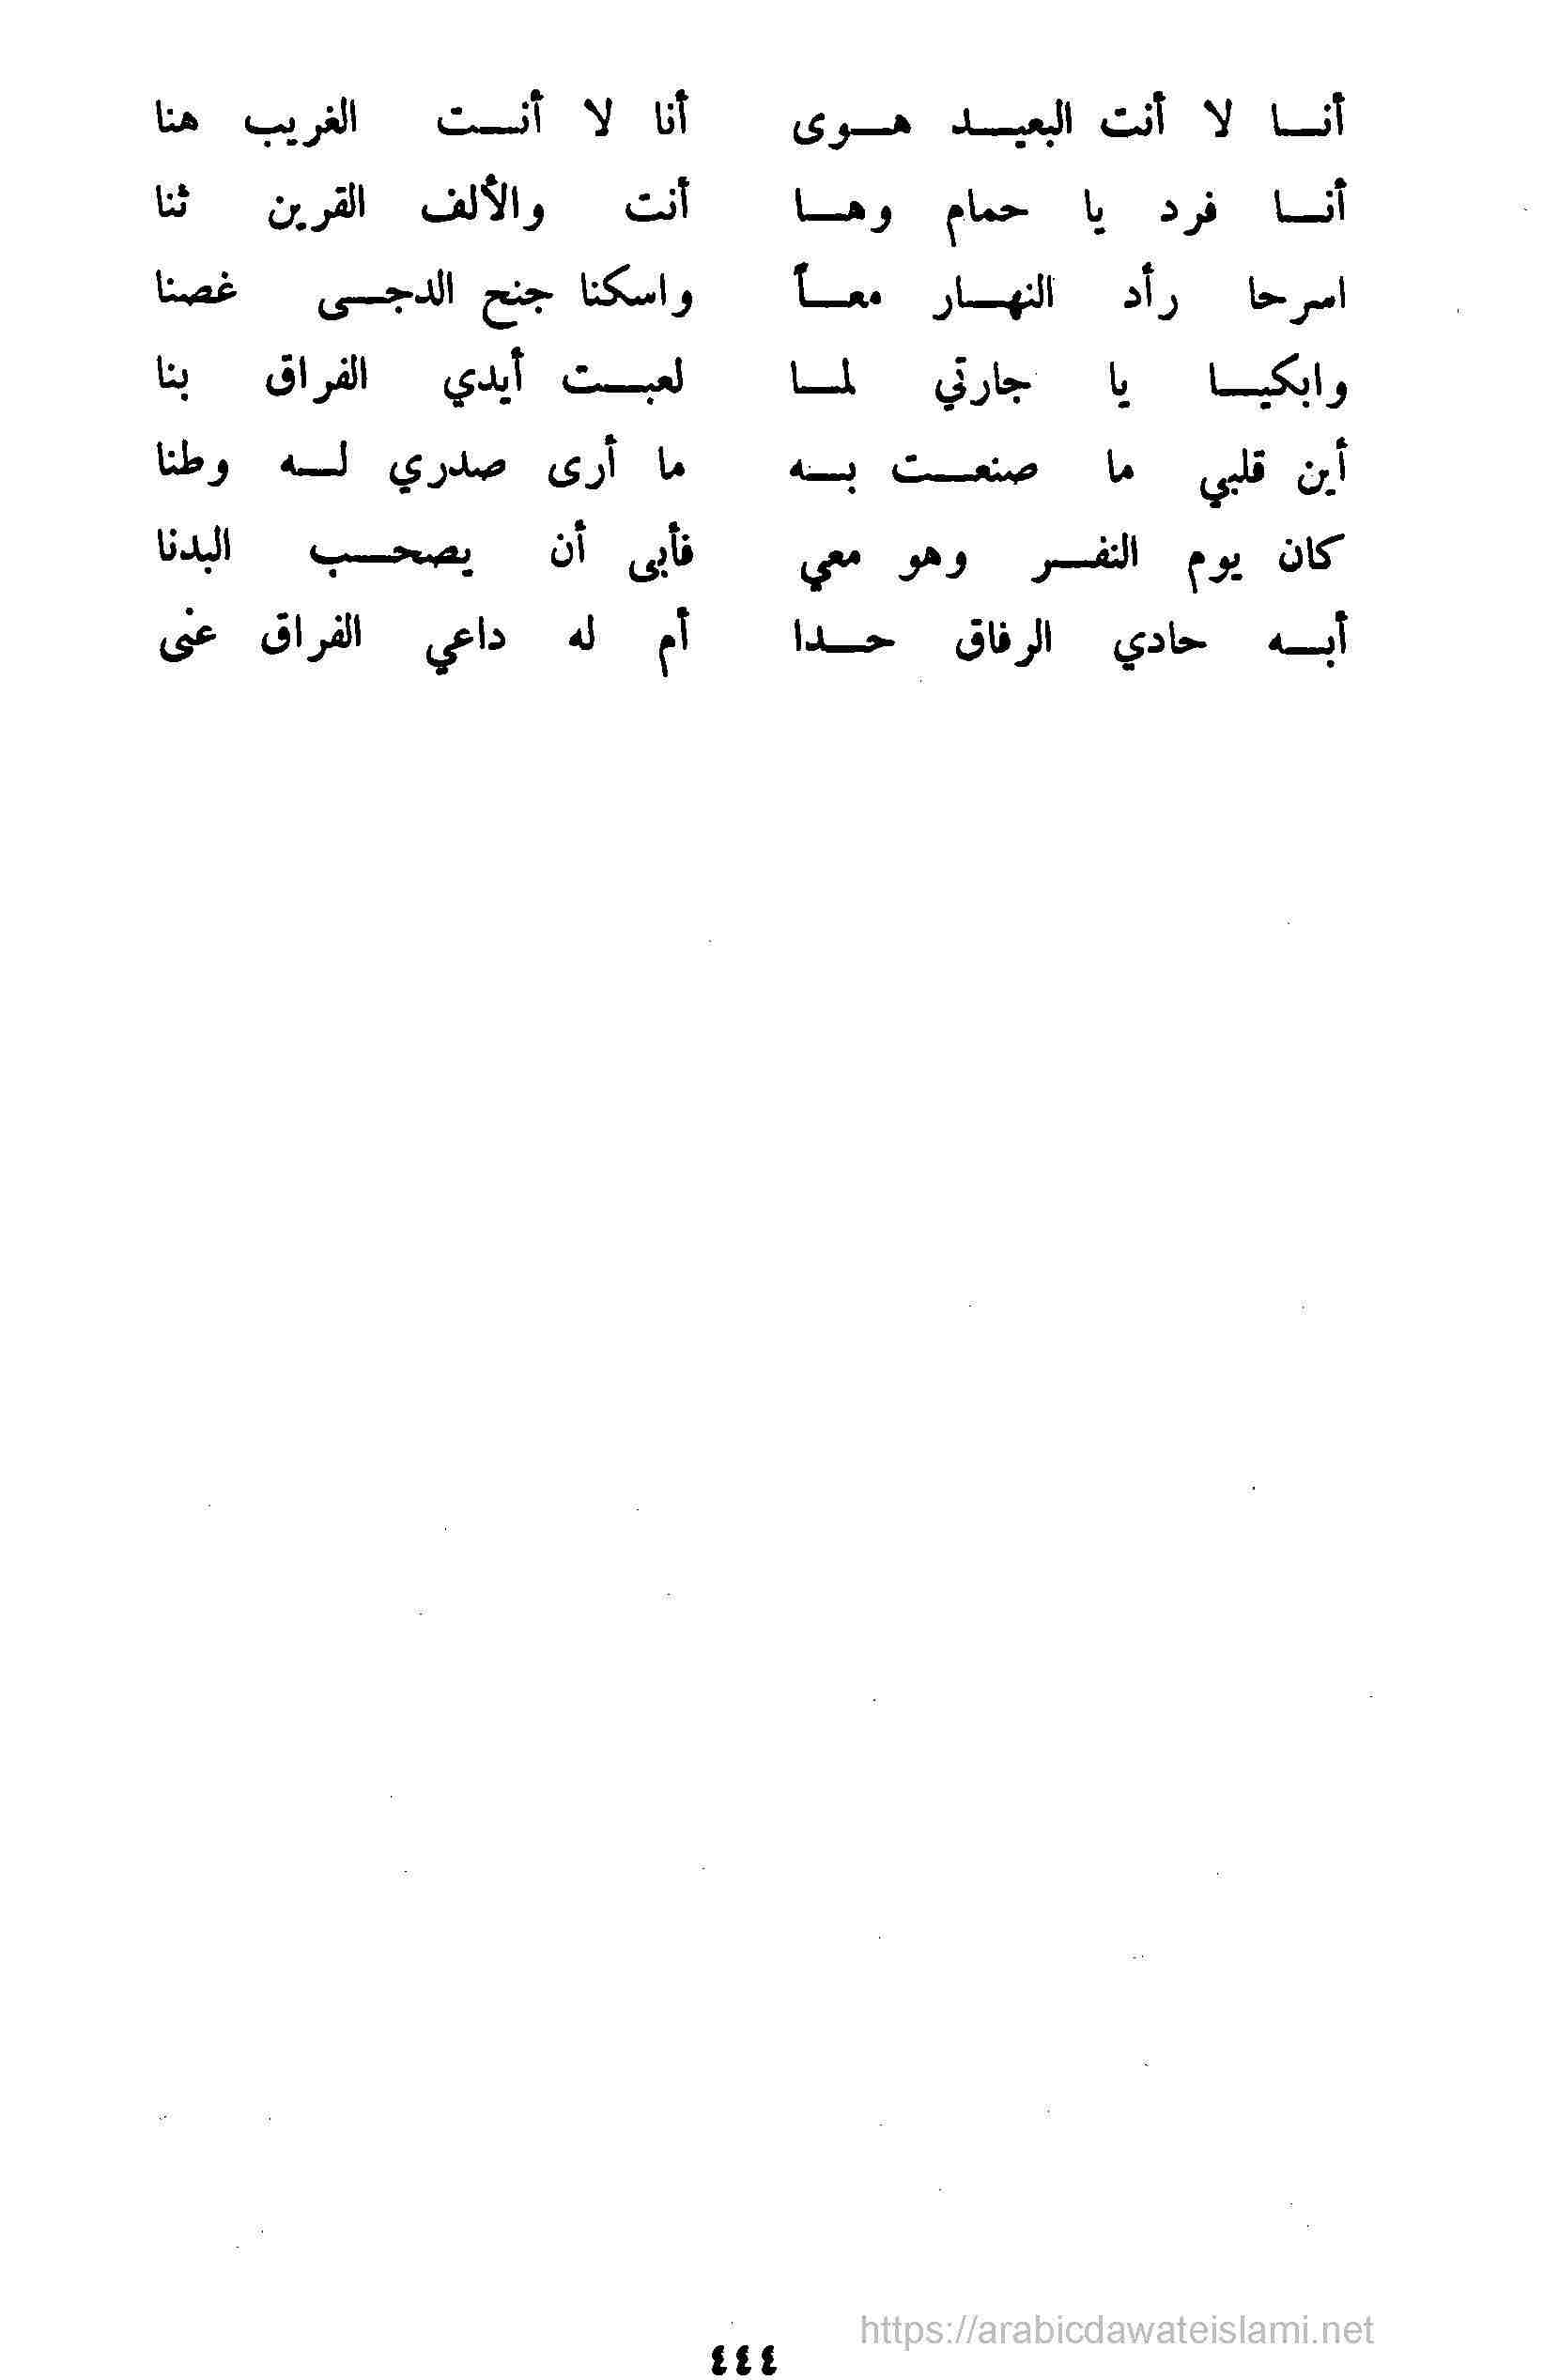 أنا لا أنت البعيد هوى أنا لا أنت الغريب هنا
أنا فرد يا حمام وها أنت والألف القرين ثنا
اسرحا رأد النهار معاً واسكنا جنح الدجى غصنا
وابكيا يا جارتي لما لعبت أيدي الفراق بنا
أين قلبي ما صنعت به ما أرى صدري له وطنا
كان يوم النفر وهو معي فأبى أن يصحب البدنا
أبه حادي الرفاق حدا أم له داعي الفراق عنى
https://arabicdawateislami.net
٤٤٤